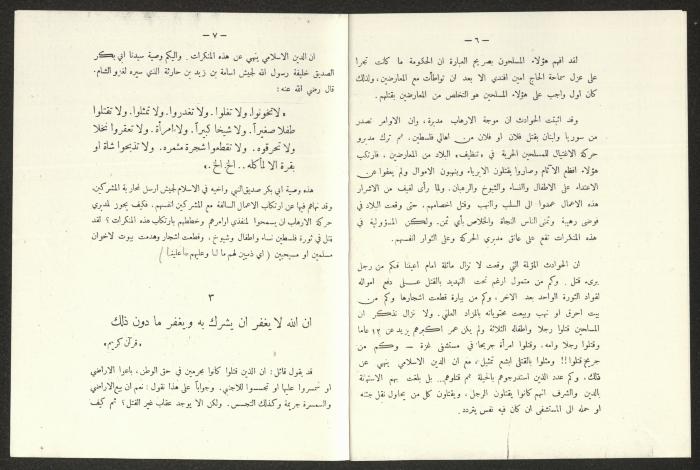 — ٦ —
لقد افهم هؤلاء المسلحون بصريح العبارة ان الحكومة ما كانت تجرأ
على عزل سماحة الحاج امين افندي الا بعد ان تواطأت مع المعارضين، ولذلك
كان اول واجب على هؤلاء المسلحين هو التخلص من المعارضين بقتلهم.
وقد اثبتت الحوادث ان موجة الارهاب مدبرة، وان الاوامر تصدر
من سوريا ولبنان بقتل فلان او فلان من اهالي فلسطين. ثم ترك مدبرو
حركة الاغتيال للمسلحين الحرية في «تنظيف» البلاد من المعارضين، فارتكب
هؤلاء افظع الآثام وصاروا يقتلون الابرياء وينهبون الاموال ولم يعفوا عن
الاعتداء على الاطفال والنساء والشيوخ والرهبان. ولما رأى لفيف من الاشرار
هذه الاعمال عمدوا الى السلب والنهب وقتل اخصامهم، حتى وقعت البلاد في
فوضى رهيبة وتمنى الناس النجاة والخلاص بأي ثمن. ولكن المسؤولية في
هذه المنكرات تقع على عاتق مدبري الحركة وعلى الثوار انفسهم.
ان الحوادث المؤلمة التي وقعت لا تزال ماثلة امام اعيننا فكم من رجل
بريء قتل. وكم من متمول ارغم تحت التهديد بالقتل على دفع امواله
لقواد الثورة الواحد بعد الآخر، وكم من بيارة قطعت اشجارها وكم من
بيت احرق او نهب وبيعت محتوياته بالمزاد العلني. ولا نزال نذكر ان
المسلحين قتلوا رجلا واطفاله الثلاثة ولم يكن عمر اكبرهم يزيد عن ١٢ عاما
وقتلوا رجلا وامه، وقتلوا امرأة جريحا في مستشفى غزة — وكم من
جريح قتلوا!! ومثلوا بالقتلى ابشع تمثيل، مع ان الدين الاسلامي ينهي عن
ذلك، وكم عدد الذين استدرجوهم بالحيلة ثم قتلوهم.. بل بلغت بهم الاستهانة
بالدين والشرف انهم كانوا يقتلون الرجل، ويقتلون كل من يحاول نقل جثته
او حمله الى المستشفى ان كان فيه نفس يتردد.
— ٧ —
ان الدين الاسلامي ينهي عن هذه المنكرات. واليكم وصية سيدنا ابي بكر
الصديق خليفة رسول الله لجيش اسامة بن زيد بن حارثة الذي سيره لغزو الشام.
قال رضي الله عنه:
«لا تخونوا. ولا تغلوا. ولا تغدروا. ولا تمثلوا. ولا تقتلوا
طفلا صغيراً. ولا شيخا كبيراً. ولا امرأة. ولا تعقروا نخلا
ولا تحرقوه. ولا تقطعوا شجرة مثمره. ولا تذبحوا شاة او
بقرة الا لمأكله.. الخ الخ.»
هذه وصية ابي بكر صديق النبي واخيه في الاسلام لجيش ارسل لمحاربة المشركين،
وقد نهاهم فيها عن ارتكاب الاعمال السالفة مع المشركين انفسهم. فكيف يجوز لمديري
حركة الارهاب ان يسمحوا لمنفذي اوامرهم وخططهم بارتكاب هذه المنكرات؟ لقد
قتل في ثورة فلسطين نساء واطفال وشيوخ، وقطعت اشجار وهدمت بيوت لاخوان
مسلمين او مسيحيين (اي ذميين لهم ما لنا وعليهم ما علينا)
٣
ان الله لا يغفر ان يشرك به ويغفر ما دون ذلك
«قرآن كريم»
قد يقول قائل: ان الذين قتلوا كانوا مجرمين في حق الوطن، باعوا الاراضي
او سمسروا عليها او تجسسوا للاجنبي. وجوابا على هذا نقول: نعم ان بيع الاراضي
والسمسرة جريمة وكذلك التجسس. ولكن الا يوجد عقاب غير القتل؟ ثم كيف